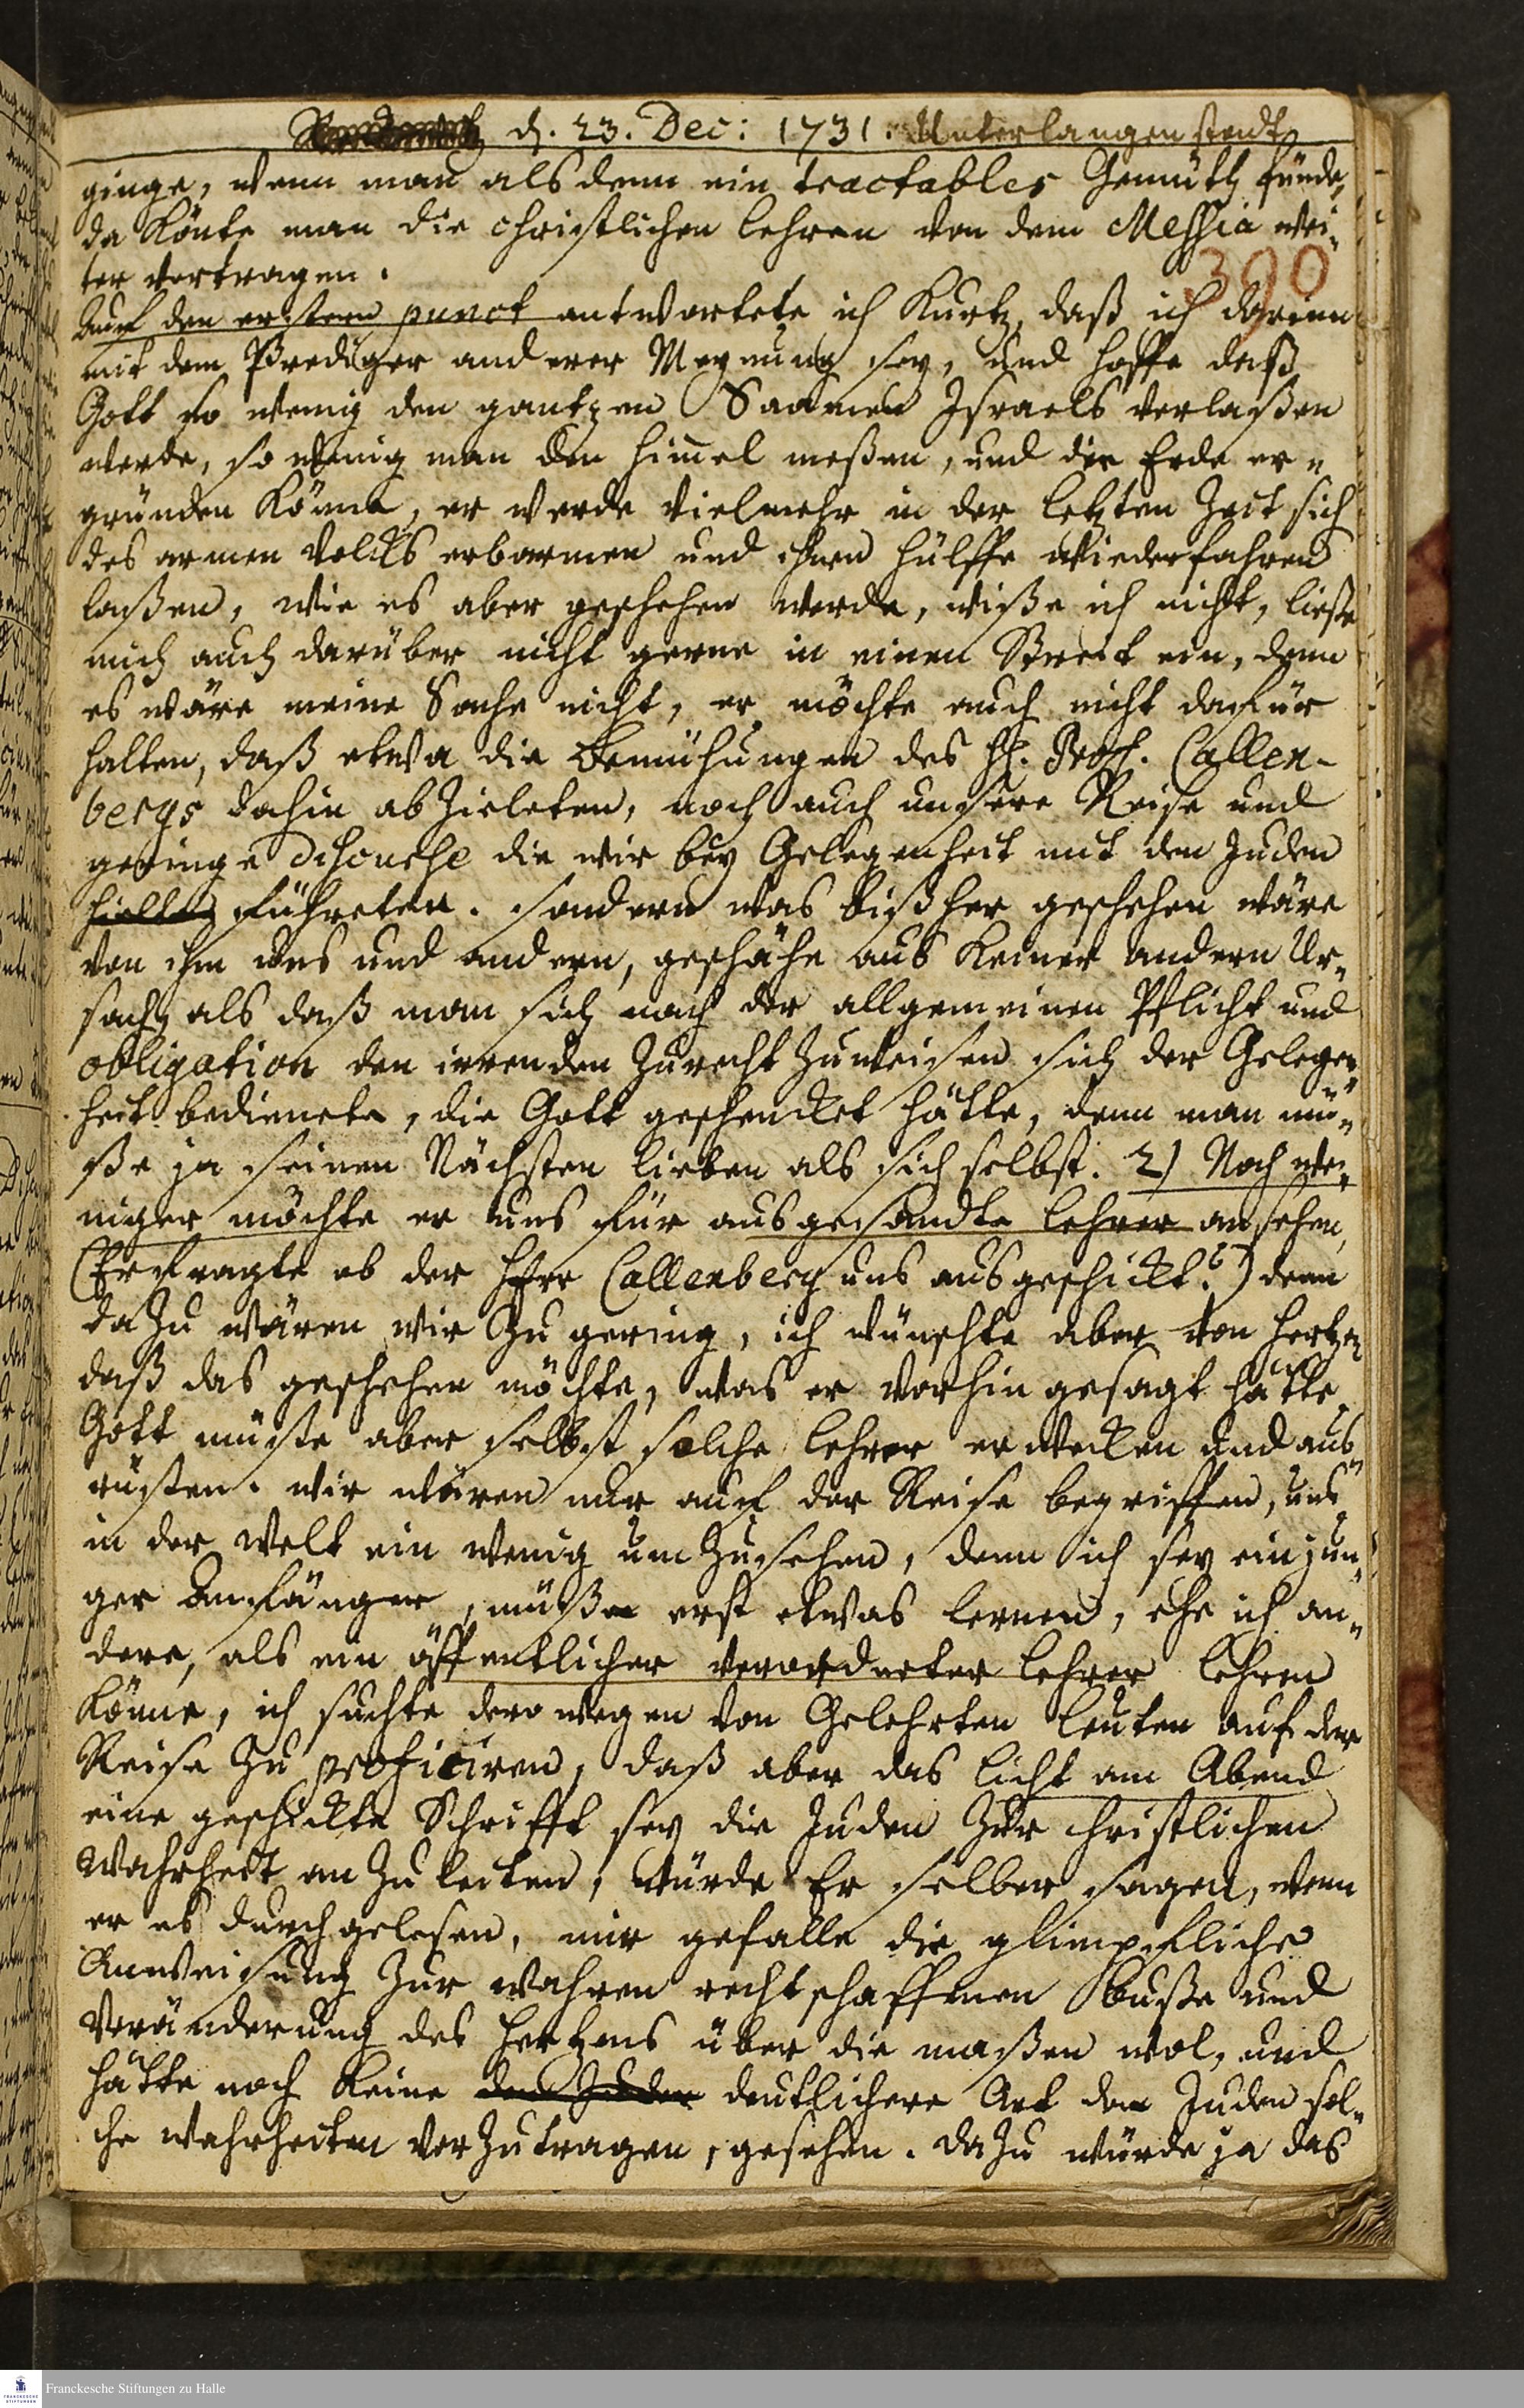 d. 23. Dec: 1731. Unterlangenstadt
ginge, wenn man alsdenn ein tractables Gemüth fünde,
da könte man die christlichen Lehren von dem Messia wei-
ter vortragen.
390
Auf den ersten punct antwortete ich kurtz, daß ich darinn
mit dem Prediger anderer Meynung sey, und hoffe daß
Gott so wenig den gantzen Saamen Israels verlaßen
werde, so wenig man den Himel meßen, und die Erde er-
gründen könne, er werde vielmehr in der letzten Zeit sich
des armen Volcks erbarmen und ihnen Hülffe wiederfahren
laßen, wie es aber geschehen werde, wiße ich nicht, ließe
mich auch darüber nicht gerne in einen Streit ein, denn
es wäre meine Sache nicht, er möchte auch nicht dafür
halten, daß etwa die Bemühungen des H. Prof. Callen-
bergs dahin abzieleten, noch auch unsere Reise und
geringe Discourse die wir bey Gelegenheit mit den Juden
hielten führeten. sondern was bißher geschehen wäre
von ihm uns und andern, geschähe aus keiner andern Ur-
sach als daß man sich nach der allgemeinen Pflicht und
obligation den irrenden zurecht zuweisen sich der Gelegen-
heit bedienete, die Gott geschencket hätte, denn man mü-
ße ja seinen Nächsten lieben als sich selbst. 2) Noch we-
niger möchte er uns für ausgesandte Lehrer ansehen,
(Er fragte ob der Herr Callenberg uns ausgeschickt?) denn
dazu wären wir zu gering, ich wünschte aber von Hertzen
daß das geschehen möchte, was er vorhin gesagt hätte,
Gott müste aber selbst solche Lehrer erwecken und aus-
rüsten. wir wären nur auf der Reise begriffen, uns
in der Welt ein wenig umzusehen, denn ich sey ein jun-
ger Anfänger, müße erst etwas lernen, ehe ich an-
dere, als ein öffentlicher verordneter Lehrer lehren
könne, ich suchte derowegen von Gelehrten Leuten auf der
Reise zu profitiren, daß aber das Licht am Abend
eine geschickte Schrifft sey die Juden zur christlichen
Wahrheit anzuleiten, würde Er selber sagen, wenn
er es durchgelesen, mir gefalle die glimpfliche
Anweisung zur wahren rechtschaffenen Buße und
Veränderung des Hertzens über die maßen wol, und
hätte noch keine den Juden deutlichere Art den Juden sol-
che Wahrheiten vorzutragen, gesehen. dazu würde ja das
Franckesche Stiftungen zu Halle